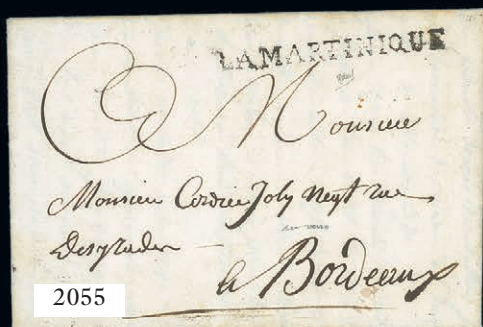 LAMARTINIQUE
Monsieur
Monsieur Cordier Joly Negt rue
Desgrades
a Bordeaux
2055